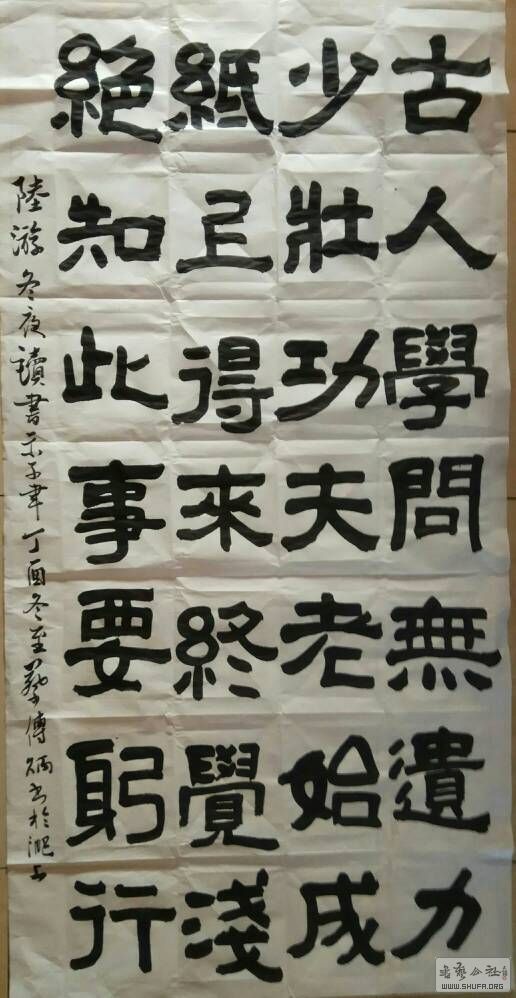 古人學問無遺力
少壯功夫老始成
紙上得來終覺淺
絕知此事要躬行
陸游冬夜讀書示子聿丁酉冬至蔡傳炳書於滬上
WWW.SHUFA.ORG